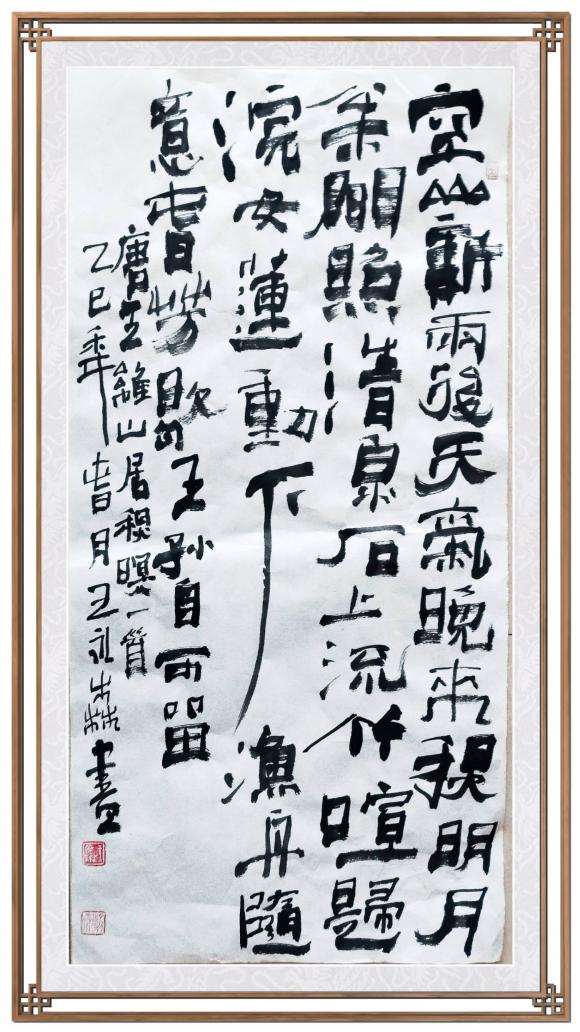 空山新雨後天氣晚來秋明月
松間照清泉石上流竹喧歸
浣女蓮動下漁舟隨
意春芳歇王孫自可留
唐王維山居秋暝一首
乙巳年春月王永森書